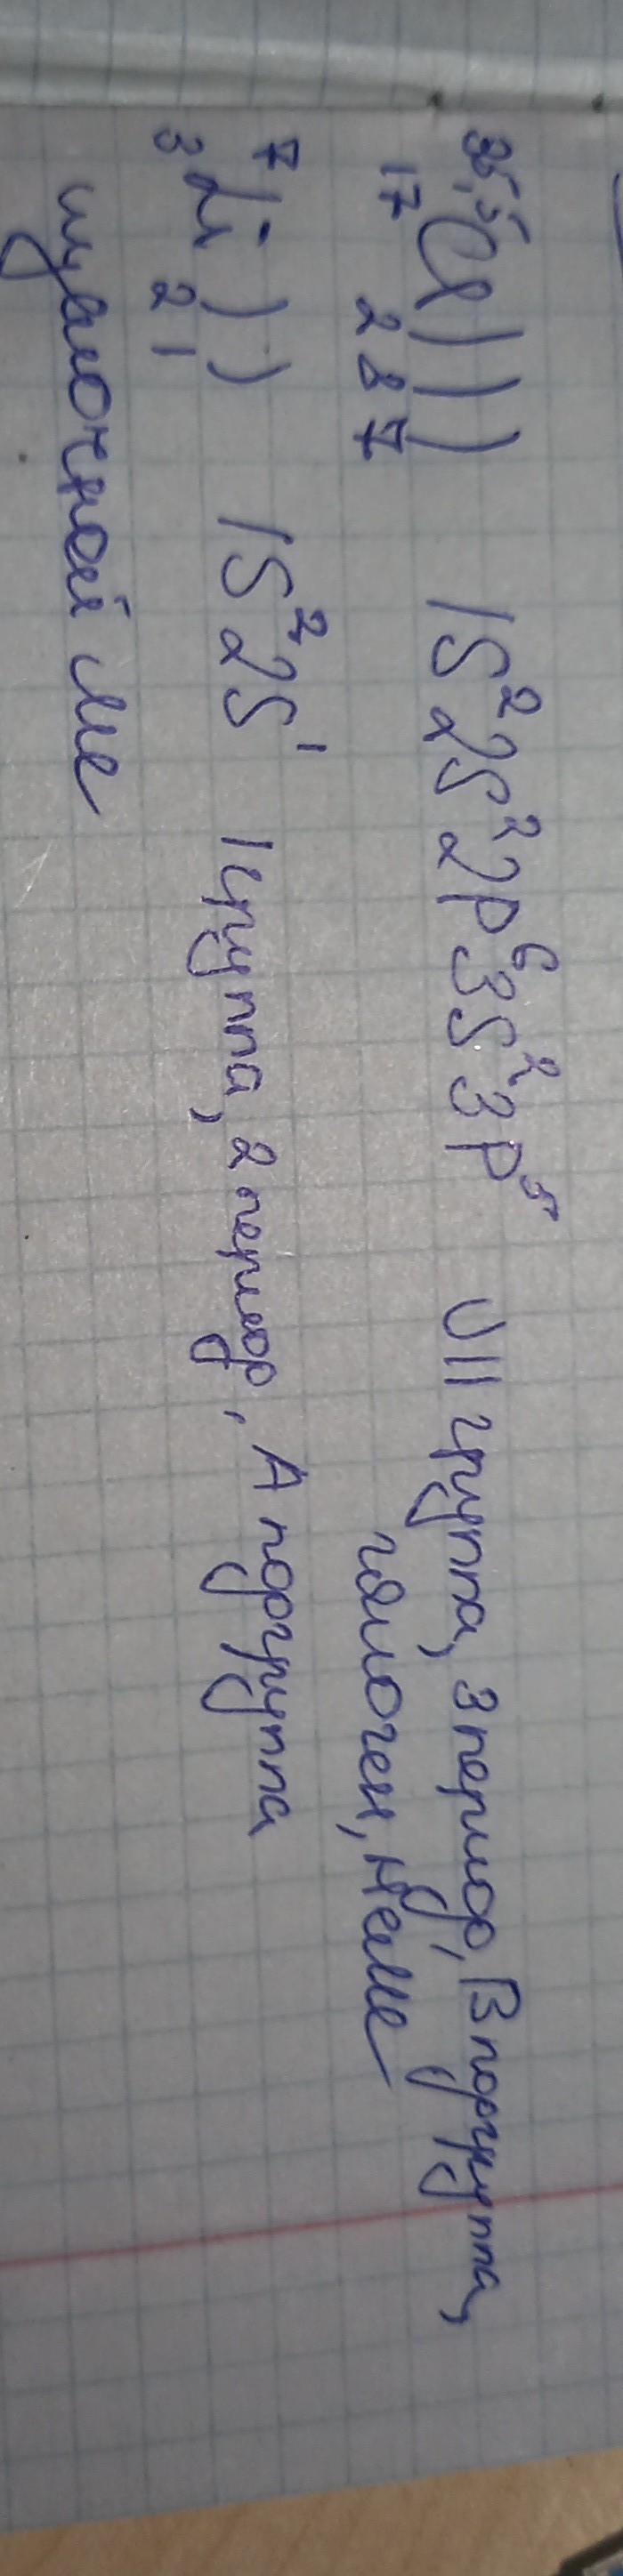 35,5
17 Cl ) ) ) 1S² 2S² 2P⁶ 3S² 3P⁵ VII группа, 3 период, В подгруппа,
2 8 7 галоген, неМе
7
3 Li ) ) 1S² 2S¹ 1 группа, 2 период, А подгруппа
2 1
щелочной Ме